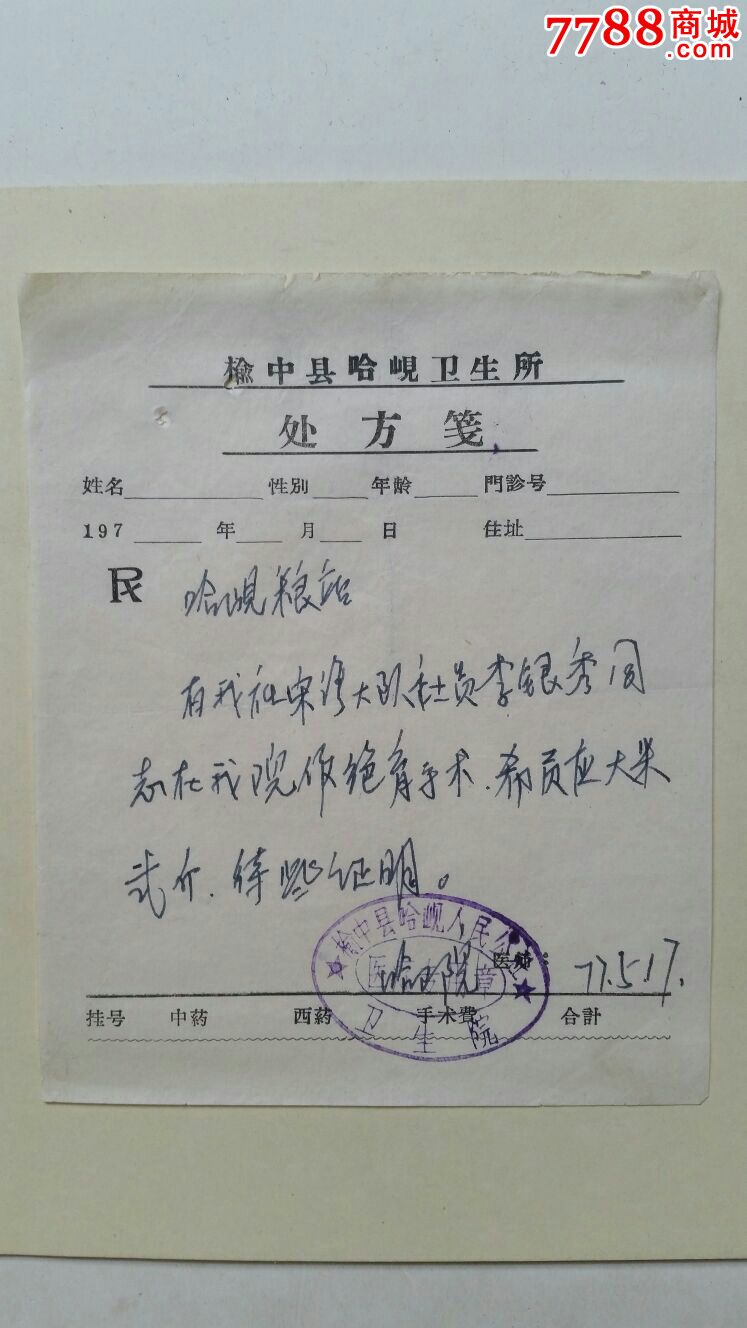 7788商城
.com
榆中县哈岘卫生所
处方笺
姓名 性別 年龄 門診号
197 年 月 日 住址
℞ 哈岘粮站
有我社宋湾大队社员李银秀同
志在我院作绝育手术.希员应大米
弍斤.待些证明。
榆中县哈岘人民公
医 章
卫生院
哈卫院 医师: 77.5.17.
挂号 中药 西药 手术費 合計